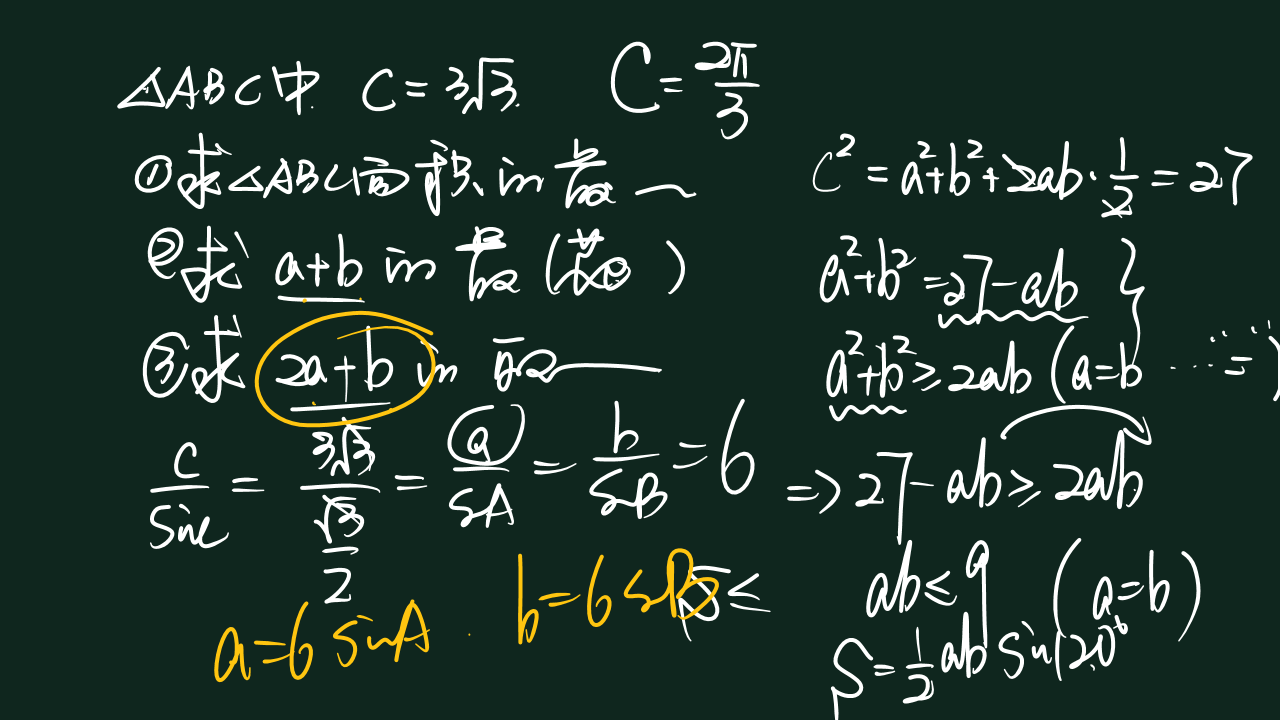 △ABC中 C=3√3 C=2π/3
①求△ABC面积 in
②求 a+b in ( )
③求 2a+b in
c/sinC = 3√3/(√3/2) = a/sA = b/sB = 6
a=6sinA . b=6sB
≤
c²=a²+b²+2ab·1/2=27
a²+b²=27-ab
a²+b²≥2ab (a=b ... = )
=>27-ab≥2ab
ab≤9 (a=b)
S=1/2 ab sin120°